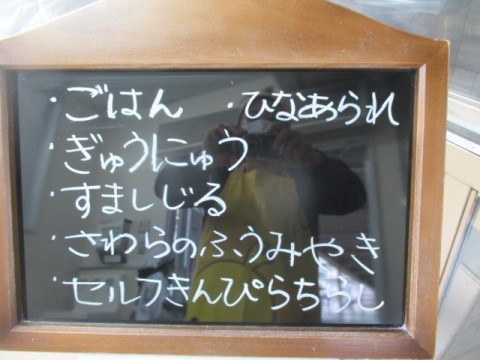 ・ごはん ・ひなあられ
・ぎゅうにゅう
・すましじる
・さわらのふうみやき
・セルフきんぴらちらし